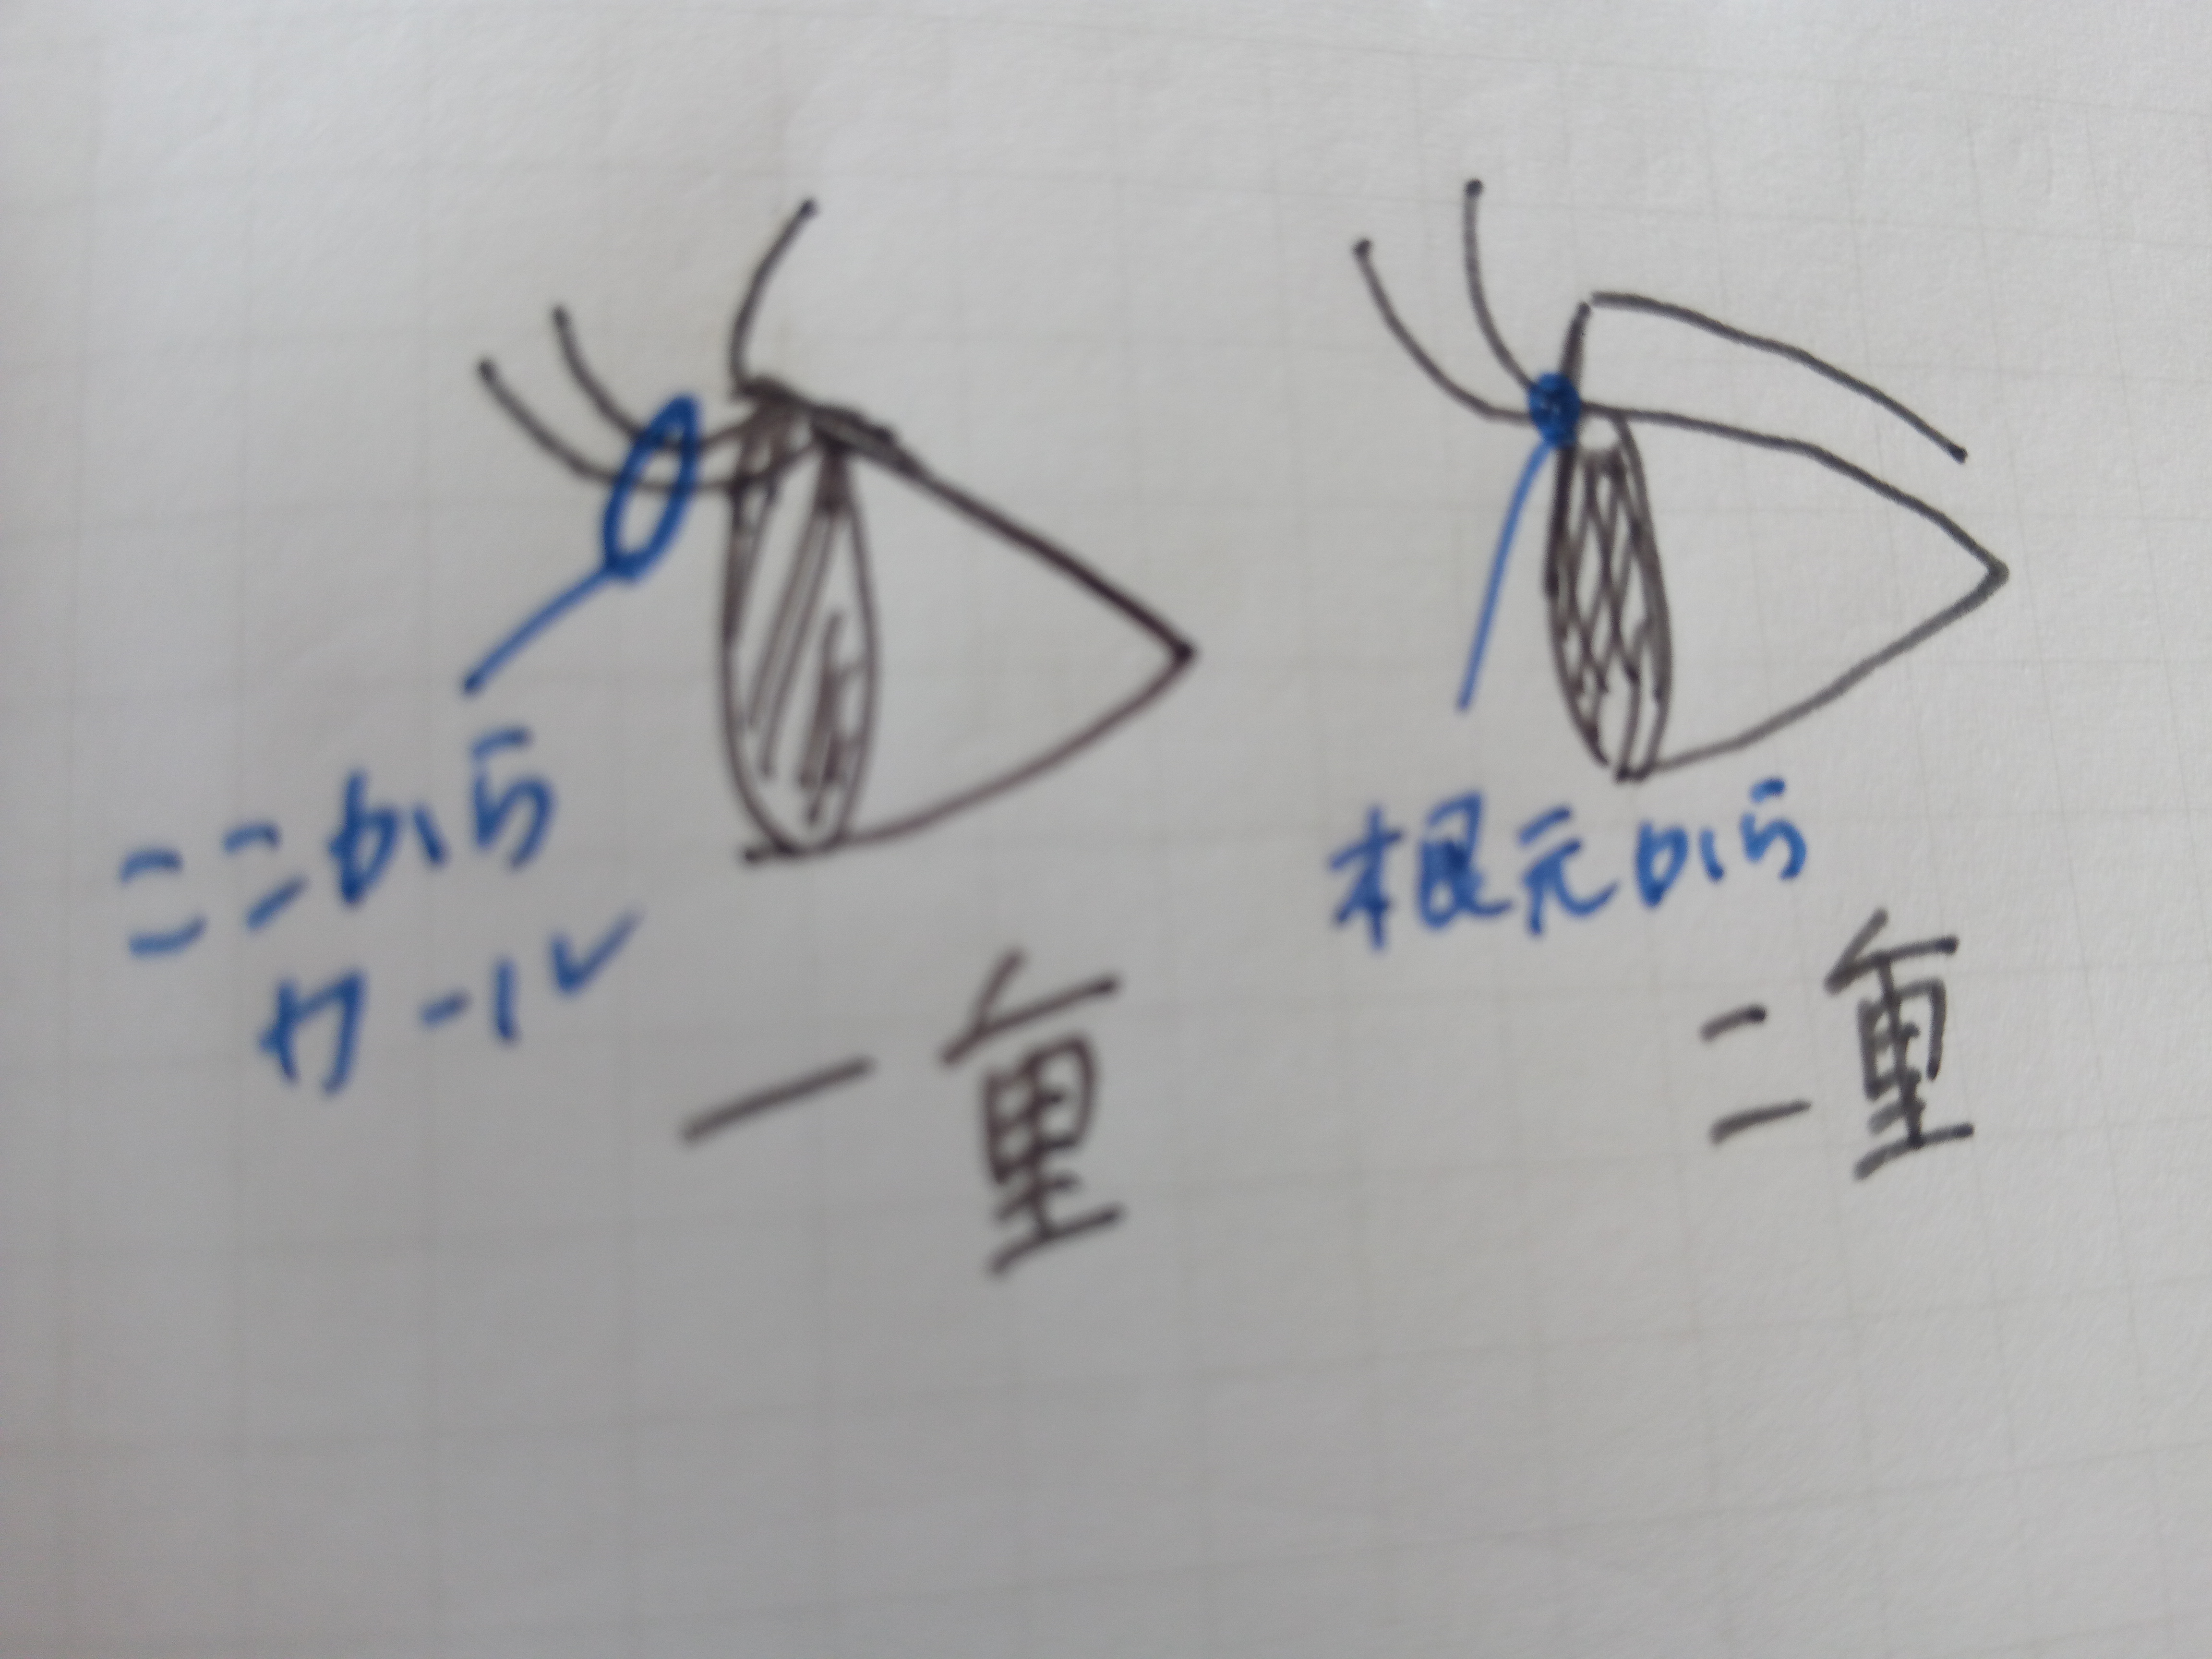 ここから
カール
一重
根元から
二重